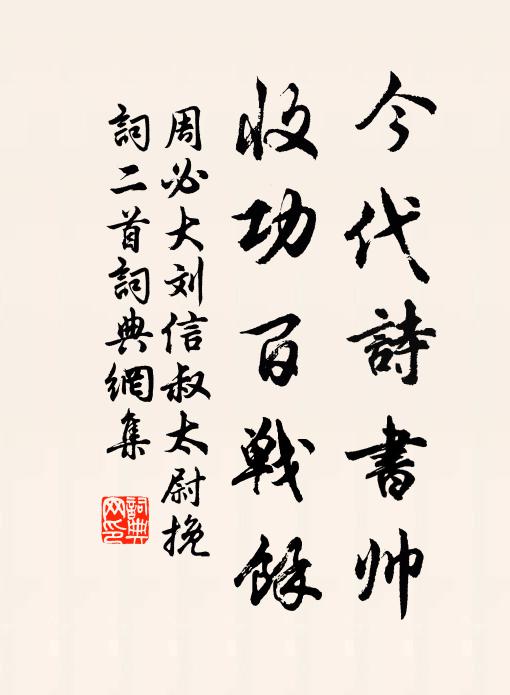 今代詩書帅
收功百戰餘
周必大刘信叔太尉挽
詞二首詞典網集
詞典
网印